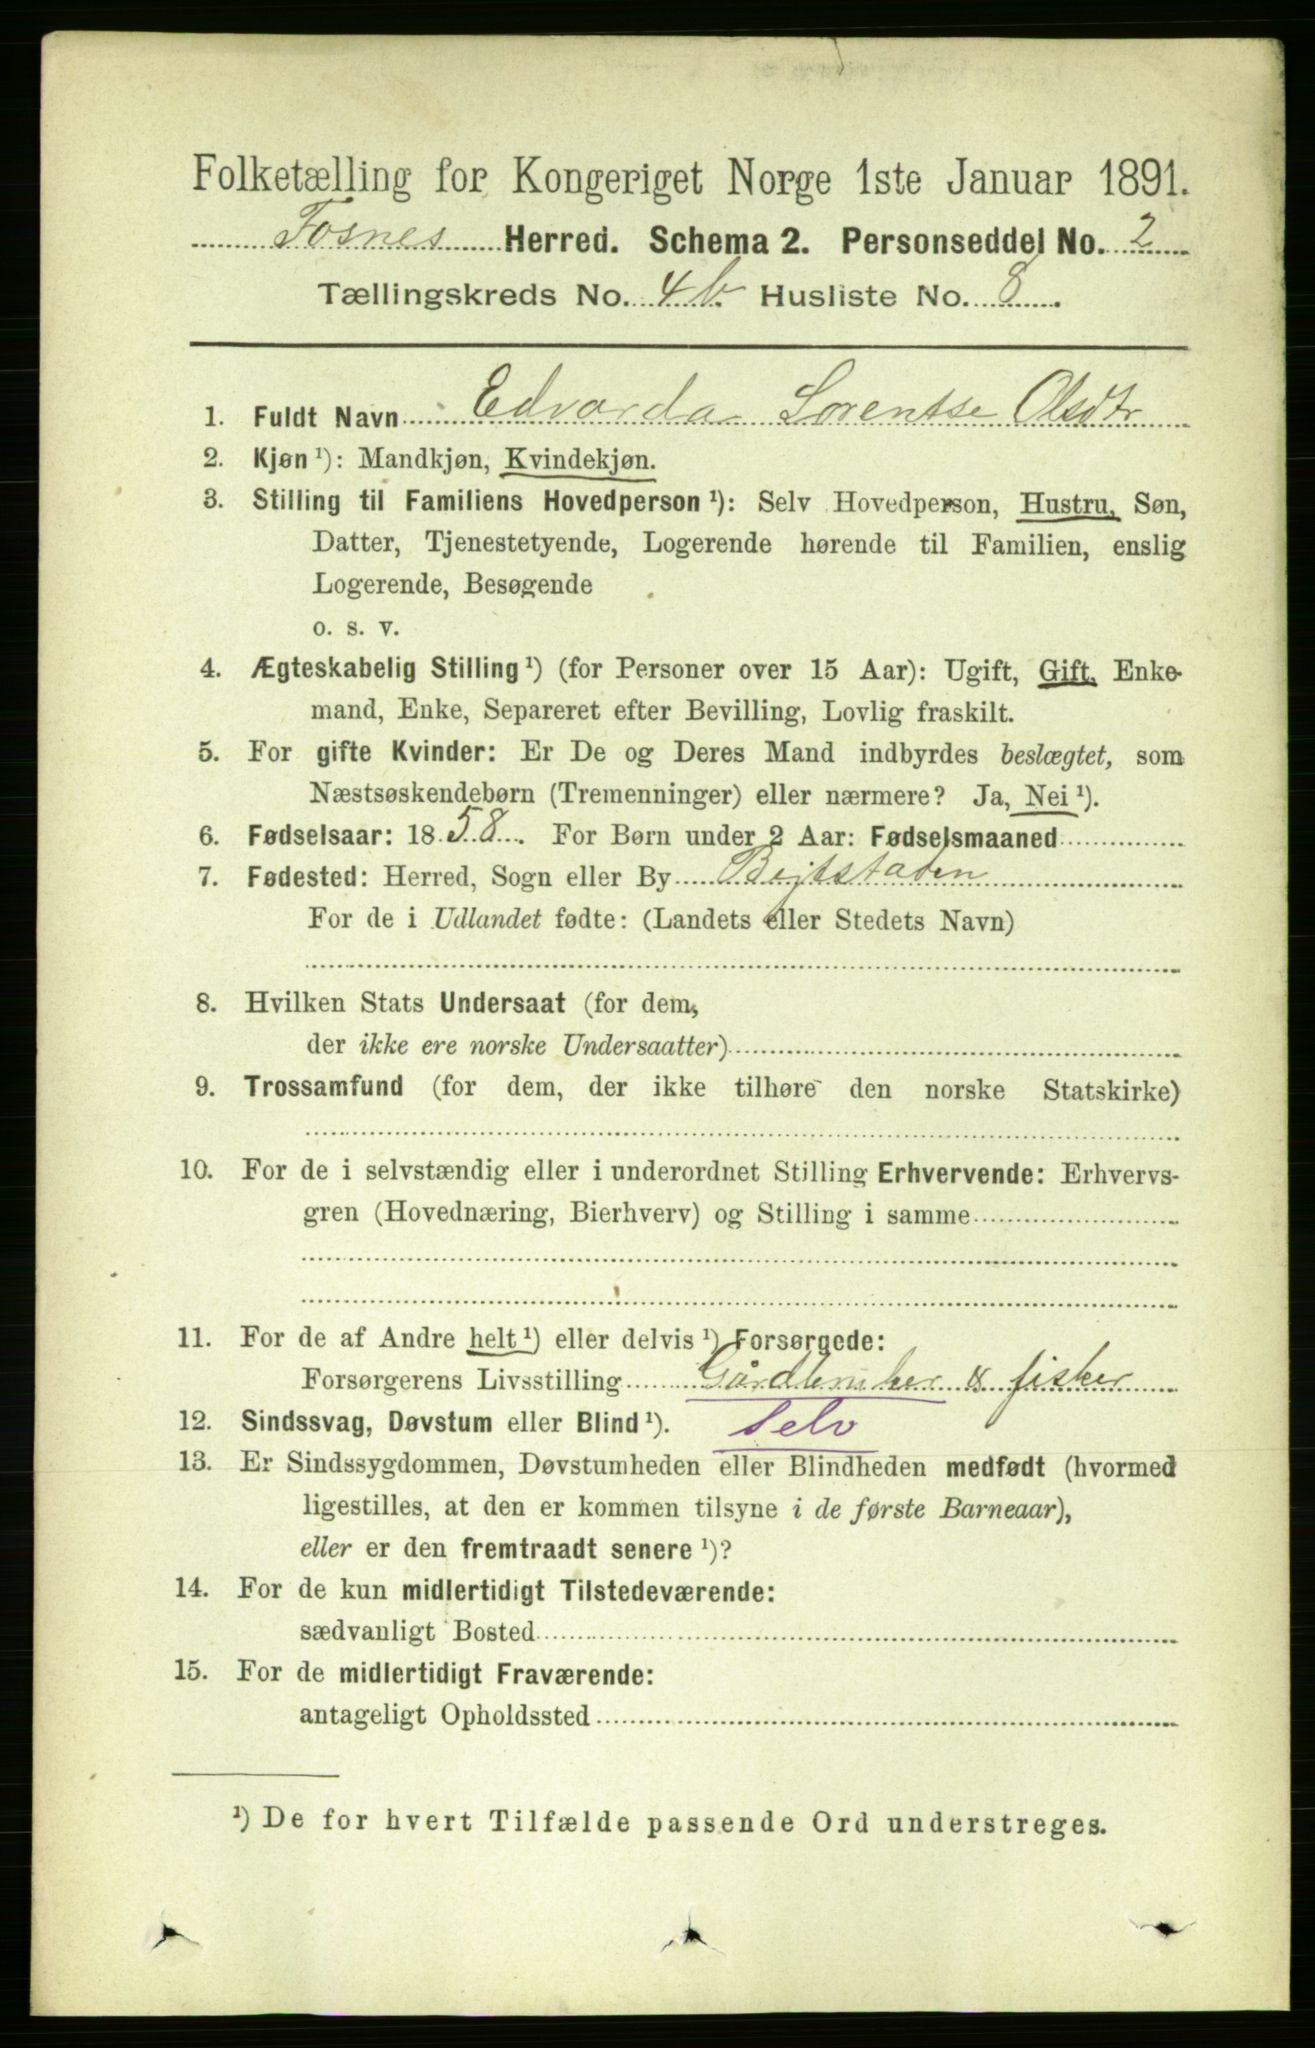 Folketælling for Kongeriget Norge 1ste Januar 1891.
Fosnes Herred. Schema 2. Personseddel No. 2
Tællingskreds No. 4b Husliste No. 8.
1. Fuldt Navn Edvarda Lorentse Olsdtr
2. Kjøn ¹): Mandkjøn, Kvindekjøn.
3. Stilling til Familiens Hovedperson ¹): Selv Hovedperson, Hustru, Søn,
Datter, Tjenestetyende, Logerende hørende til Familien, enslig
Logerende, Besøgende
o. s. v.
4. Ægteskabelig Stilling ¹) (for Personer over 15 Aar): Ugift, Gift, Enke-
mand, Enke, Separeret efter Bevilling, Lovlig fraskilt.
5. For gifte Kvinder: Er De og Deres Mand indbyrdes beslægtet, som
Næstsøskendebørn (Tremenninger) eller nærmere? Ja, Nei ¹).
6. Fødselsaar: 1858. For Børn under 2 Aar: Fødselsmaaned
7. Fødested: Herred, Sogn eller By Bejtstaden
For de i Udlandet fødte: (Landets eller Stedets Navn)
8. Hvilken Stats Undersaat (for dem,
der ikke ere norske Undersaatter)
9. Trossamfund (for dem, der ikke tilhøre den norske Statskirke)
10. For de i selvstændig eller i underordnet Stilling Erhvervende: Erhvervs-
gren (Hovednæring, Bierhverv) og Stilling i samme
11. For de af Andre helt ¹) eller delvis ¹) Forsørgede:
Forsørgerens Livsstilling Gårdbruker & fisker
12. Sindssvag, Døvstum eller Blind ¹). Selv
13. Er Sindssygdommen, Døvstumheden eller Blindheden medfødt (hvormed
ligestilles, at den er kommen tilsyne i de første Barneaar),
eller er den fremtraadt senere ¹)?
14. For de kun midlertidigt Tilstedeværende:
sædvanligt Bosted
15. For de midlertidigt Fraværende:
antageligt Opholdssted
¹) De for hvert Tilfælde passende Ord understreges.